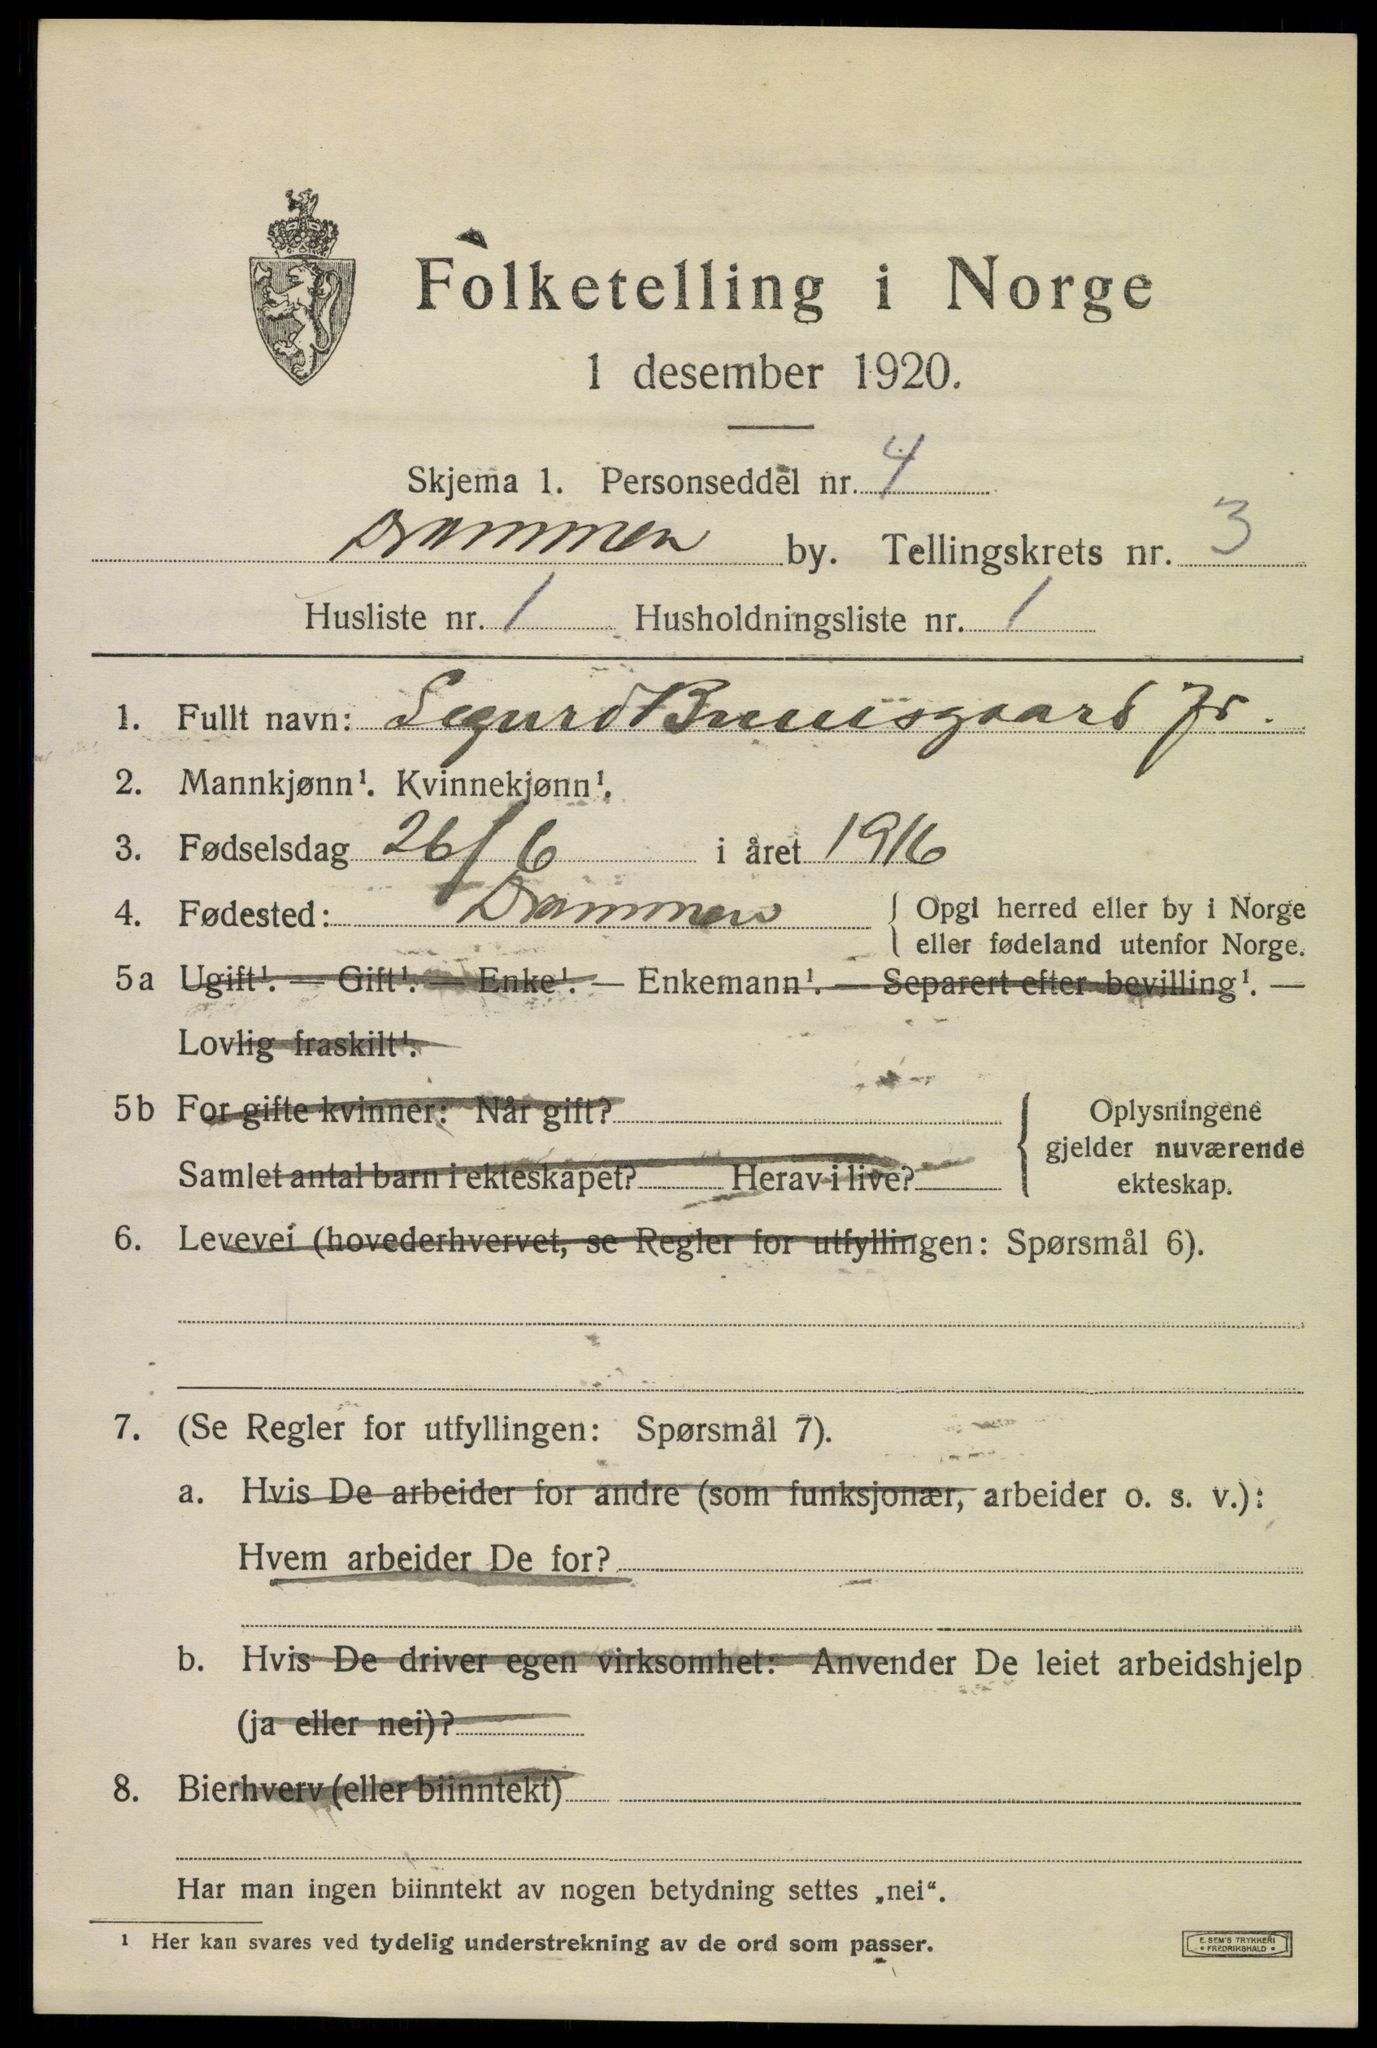 Folketelling i Norge
1 desember 1920.
Skjema 1. Personseddel nr. 4
Drammen by. Tellingskrets nr. 3
Husliste nr. 1 Husholdningsliste nr. 1
1. Fullt navn: Sigurd Bruusgaard Jr.
2. Mannkjønn¹. Kvinnekjønn¹.
3. Fødselsdag 26/6 i året 1916
4. Fødested: Drammen { Opgi herred eller by i Norge
eller fødeland utenfor Norge.
5a Ugift¹. — Gift¹. — Enke¹. — Enkemann¹. — Separert efter bevilling¹. —
Lovlig fraskilt¹.
5b For gifte kvinner: Når gift?
Samlet antal barn i ekteskapet? Herav i live?
{ Oplysningene
gjelder nuværende
ekteskap.
6. Levevei (hovederhvervet, se Regler for utfyllingen: Spørsmål 6).
7. (Se Regler for utfyllingen: Spørsmål 7).
a. Hvis De arbeider for andre (som funksjonær, arbeider o. s. v.):
Hvem arbeider De for?
b. Hvis De driver egen virksomhet: Anvender De leiet arbeidshjelp
(ja eller nei)?
8. Bierhverv (eller biinntekt)
Har man ingen biinntekt av nogen betydning settes „nei“.
¹ Her kan svares ved tydelig understrekning av de ord som passer.
E. SEM'S TRYKKERI
• FREDRIKSHALD •